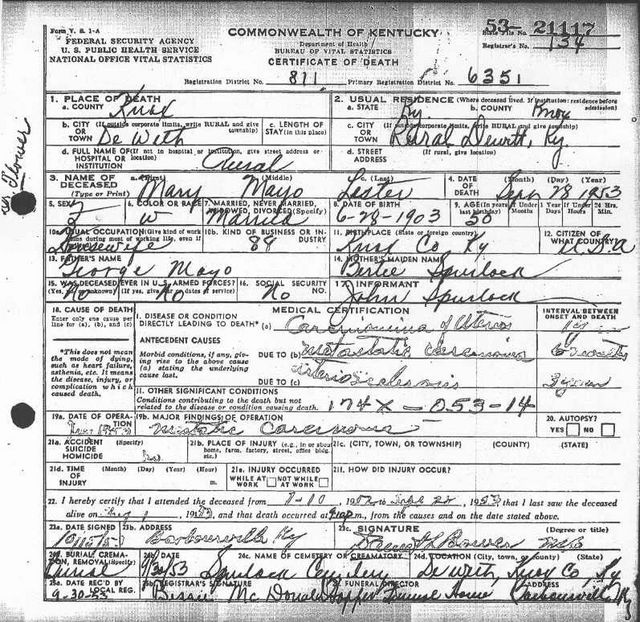 Form V. S. 1-A
FEDERAL SECURITY AGENCY
U. S. PUBLIC HEALTH SERVICE
NATIONAL OFFICE VITAL STATISTICS
COMMONWEALTH OF KENTUCKY
Department of Health
BUREAU OF VITAL STATISTICS
CERTIFICATE OF DEATH
53- 21117
State File No.
Registrar's No. 134
Registration District No. 811 Primary Registration District No. 6351
1. PLACE OF DEATH
a. COUNTY Knox
b. CITY (If outside corporate limits, write RURAL and give township) OR TOWN De With
c. LENGTH OF STAY (in this place)
d. FULL NAME OF (If not in hospital or institution, give street address or location) HOSPITAL OR INSTITUTION Rural
2. USUAL RESIDENCE (Where deceased lived. If institution: residence before admission)
a. STATE Ky b. COUNTY Knox
c. CITY (If outside corporate limits, write RURAL and give township) OR TOWN Rural Dewitt, Ky
d. STREET ADDRESS (If rural, give location)
3. NAME OF DECEASED (Type or Print) a. (First) Mary (Middle) Mayo (Last) Lester
4. DATE OF DEATH (Month) (Day) (Year) Sept 28 1953
5. SEX F
6. COLOR OR RACE W
7. MARRIED, NEVER MARRIED, WIDOWED, DIVORCED (Specify) Married
8. DATE OF BIRTH 6-28-1903
9. AGE (In years last birthday) 50
10a. USUAL OCCUPATION (Give kind of work done during most of working life, even if retired) Housewife
10b. KIND OF BUSINESS OR INDUSTRY
11. BIRTHPLACE (State or foreign country) Knox Co Ky
12. CITIZEN OF WHAT COUNTRY? U.S.A
13. FATHER'S NAME George Mayo
14. MOTHER'S MAIDEN NAME Spurlock
15. WAS DECEASED EVER IN U.S. ARMED FORCES? (Yes, no, or unknown) (If yes, give war or dates of service) No
16. SOCIAL SECURITY NO. No
17. INFORMANT John Spurlock
18. CAUSE OF DEATH
Enter only one cause per line for (a), (b), and (c)
*This does not mean the mode of dying, such as heart failure, asthenia, etc. It means the disease, injury, or complication which caused death.
MEDICAL CERTIFICATION
INTERVAL BETWEEN ONSET AND DEATH
I. DISEASE OR CONDITION DIRECTLY LEADING TO DEATH* (a) Carcinoma of Uterus
ANTECEDENT CAUSES
Morbid conditions, if any, giving rise to the above cause (a) stating the underlying cause last.
DUE TO (b) Metastatic Carcinoma
DUE TO (c) Arteriosclerosis
II. OTHER SIGNIFICANT CONDITIONS
Conditions contributing to the death but not related to the disease or condition causing death.
174X - 053-14
19a. DATE OF OPERATION
19b. MAJOR FINDINGS OF OPERATION Carcinoma
20. AUTOPSY? YES NO
21a. ACCIDENT SUICIDE HOMICIDE (Specify)
21b. PLACE OF INJURY (e.g., in or about home, farm, factory, street, office bldg., etc.)
21c. (CITY, TOWN, OR TOWNSHIP) (COUNTY) (STATE)
21d. TIME OF INJURY (Month) (Day) (Year) (Hour) m.
21e. INJURY OCCURRED WHILE AT WORK NOT WHILE AT WORK
21f. HOW DID INJURY OCCUR?
22. I hereby certify that I attended the deceased from 1953, that I last saw the deceased
alive on and that death occurred at m., from the causes and on the date stated above.
23a. DATE SIGNED
23b. ADDRESS Barbourville Ky
23c. SIGNATURE (Degree or title)
24a. BURIAL, CREMATION, REMOVAL (Specify) Burial
24b. DATE 9/30/53
24c. NAME OF CEMETERY OR CREMATORY Spurlock
24d. LOCATION (City, town, or county) (State) De With, Knox Co, Ky
25a. DATE REC'D BY LOCAL REG. 9-30-53
25b. REGISTRAR'S SIGNATURE Bessie McDonald
26. FUNERAL DIRECTOR Hopper Funeral Home
ADDRESS Barbourville, Ky